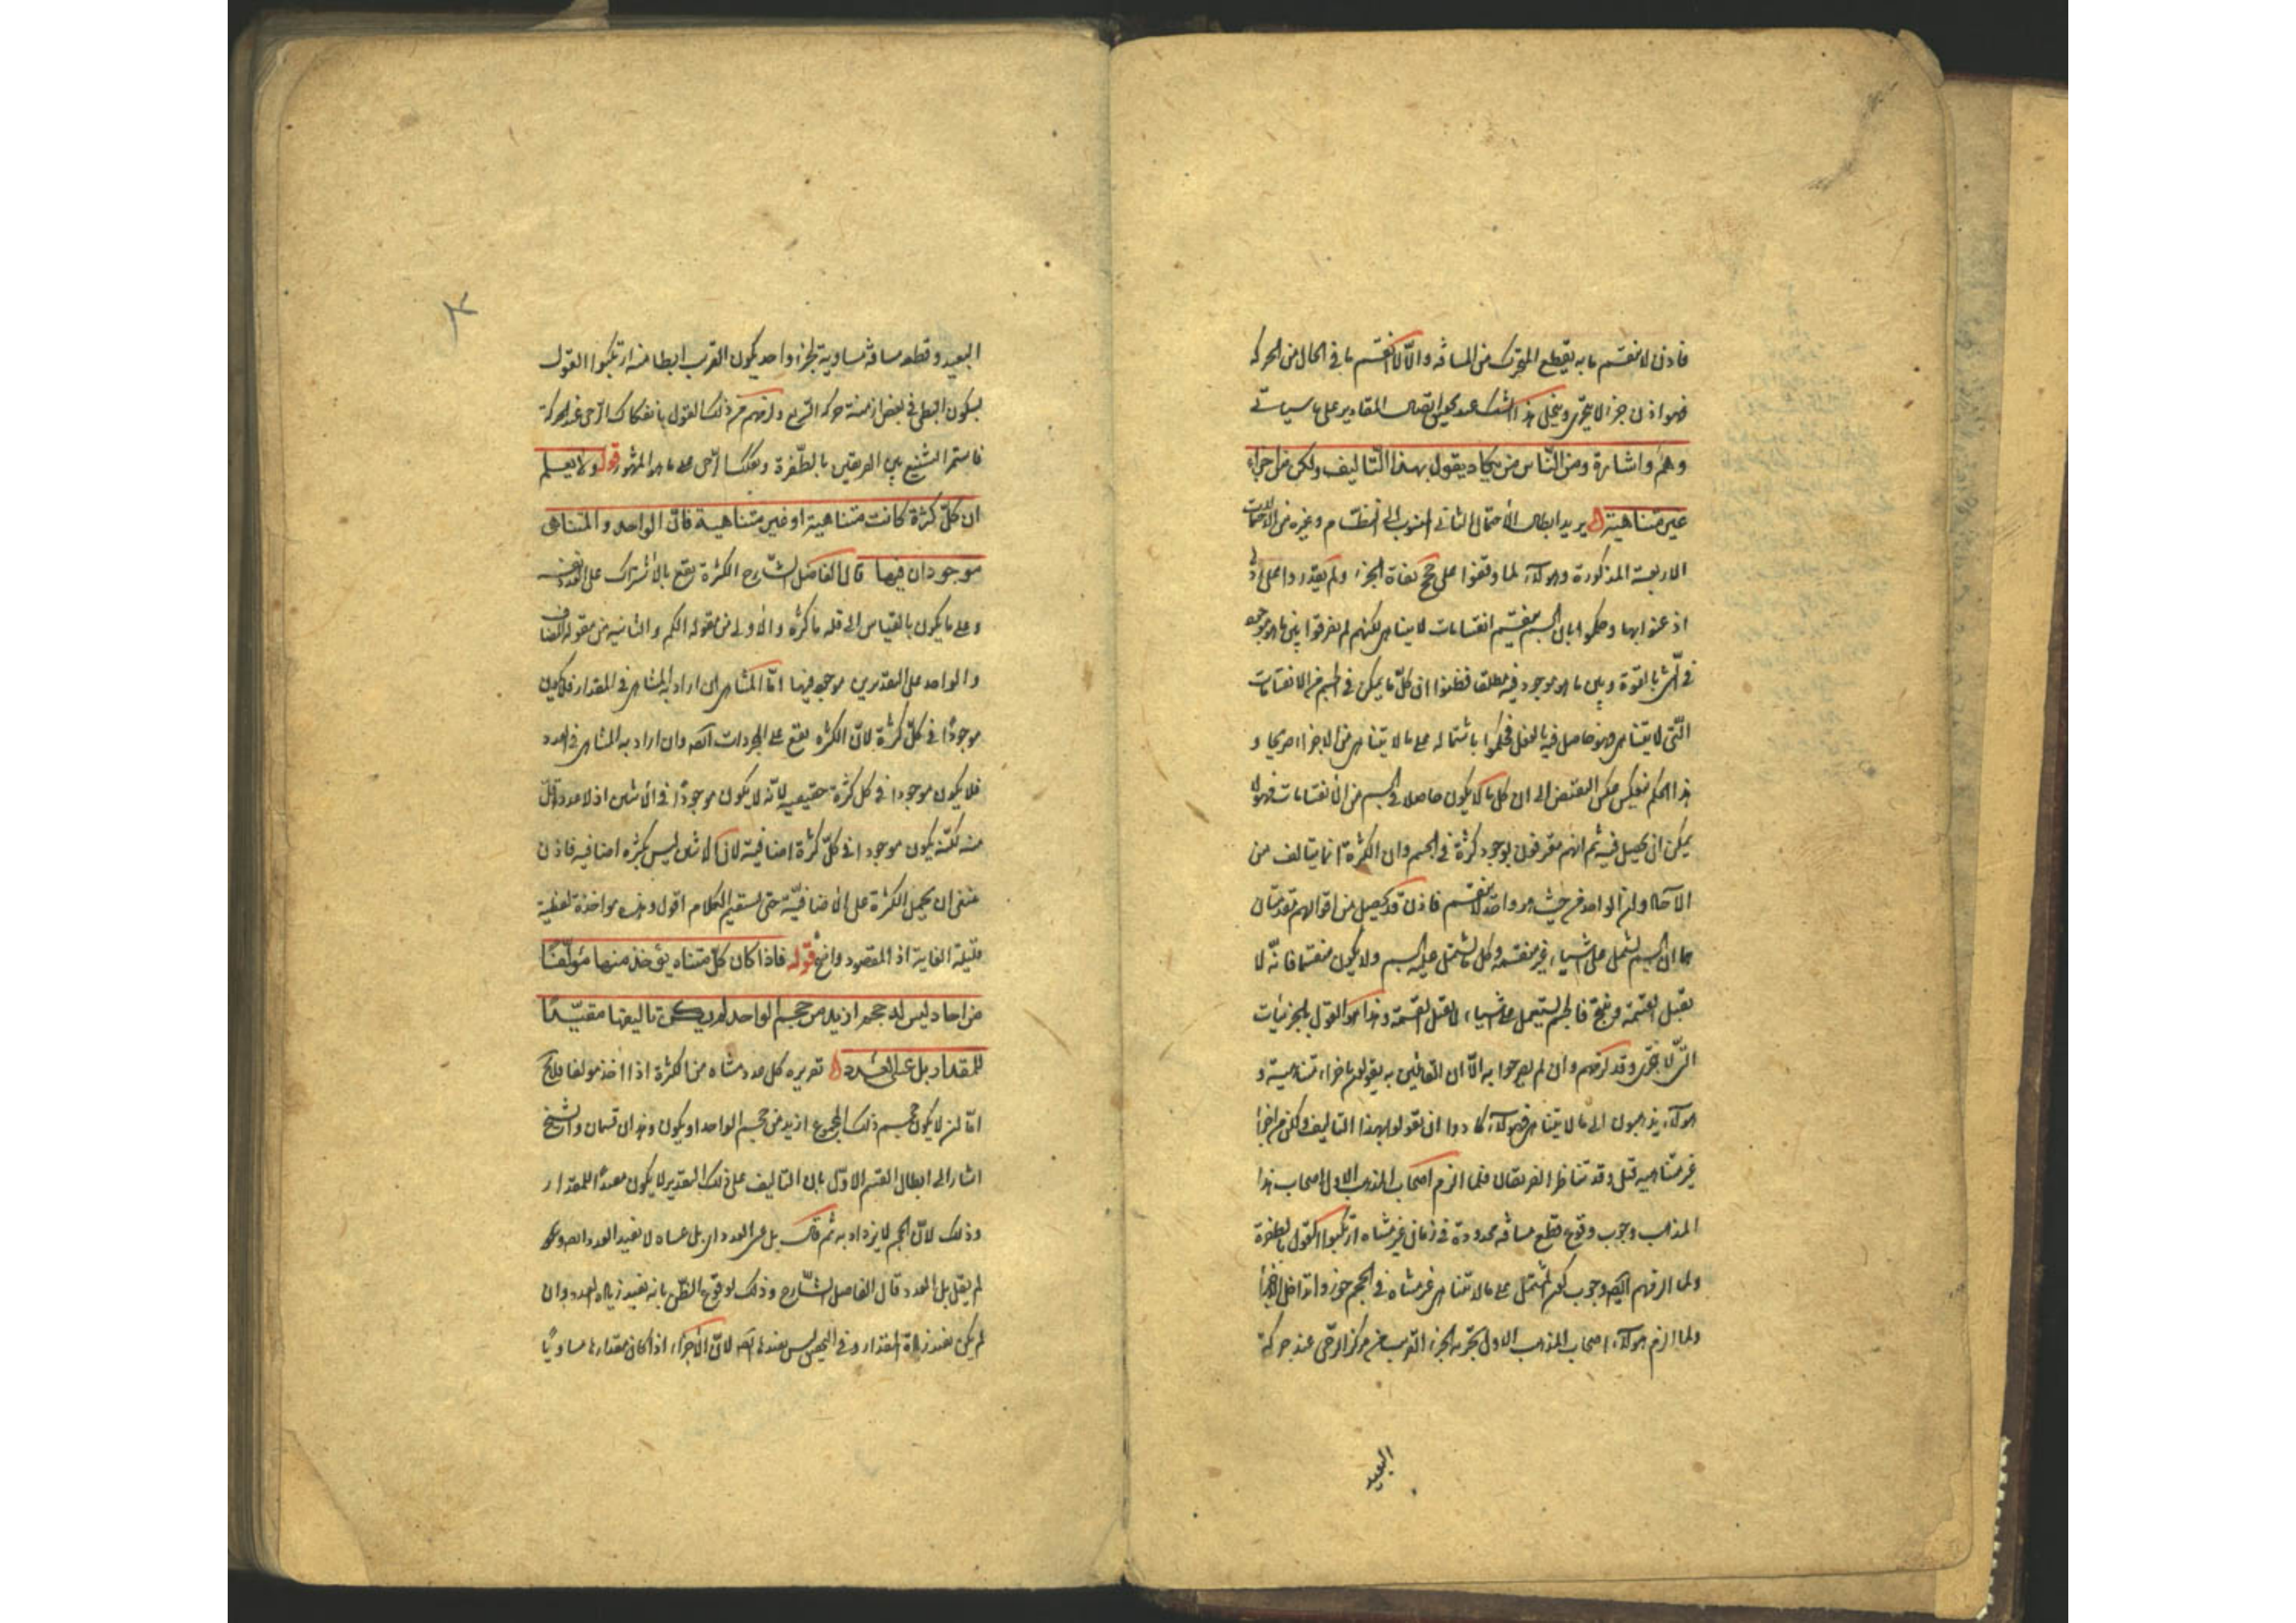 فاذن لا ينقسم ما به يقطع المتحرك من المسافة والا لانقسم ما في الحال من الحركة
فهو اذن جزء لا يتجزى وينحل هذا الشك عند تحقيق اتصال المقادير على ما سياتي
وهم واشارة ومن الناس من يكاد يقول بهذا التاليف ولكن من اجزاء
غير متناهية يريد ابطال الاحتمال الثاني المنسوب الى النظام وغيره من الاحتمالات
الاربعة المذكورة وهولاء لما وقفوا على حجج نفاة الجزء ولم يقدروا على
اذعنوا بها وحكموا بان الجسم ينقسم انقسامات لا يتناهى لكنهم لم يفرقوا بين ما هو موجود
في الشى بالقوة وبين ما هو موجود فيه مطلقا فظنوا ان كل ما يمكن في الجسم من الانقسامات
التي لا يتناهى فهو حاصل فيه بالفعل فحكموا باشتماله على ما لا يتناهى من الاجزاء صريحا و
هذا الحكم ينعكس عكس النقيض الى ان كل ما لا يكون حاصلا في الجسم من الانقسامات فهو لا
يمكن ان يحصل فيه ثم انهم معترفون بوجود كثرة في الجسم وان الكثرة انما يتالف من
الاحاد وان الواحد من حيث هو واحد لا ينقسم فاذن قد يحصل من اقوالهم مقدمتان
هما ان الجسم يشتمل على اشياء غير منقسمة وكل ما يشتمل عليه الجسم ولا يكون منقسما فانه لا
يقبل القسمة وينتج فالجسم يشتمل على اشياء لا يقبل القسمة وهذا هو القول بالجزئيات
التي لا يتجزى وقد لزمهم وان لم يصرحوا به الا ان القائلين به يقولون باجزاء متناهية و
هولاء يذهبون الى ما لا يتناهى فهولاء كادوا ان يقولوا بهذا التاليف ولكن من اجزاء
غير متناهية قيل وقد تناظر الفريقان فلما الزم اصحاب المذهب الاول اصحاب هذا
المذهب وجوب وقوع قطع مسافة محدودة في زمان غير متناه ارتكبوا القول بالطفرة
ولما الزمهم ايضا وجوب كون المشتمل على ما لا يتناهى غير متناه في الحجم جوزوا تداخل الاجزاء
ولما الزم هولاء اصحاب المذهب الاول تجزية الجزء القريب من مركز الرحى عند حركة
البعيد
البعيد وقطعه مسافة مساوية لجزء واحد يكون القريب ابطا منه ارتكبوا القول
بسكون البطى في بعض ازمنة حركة السريع ولزمهم من ذلك القول بانفكاك الرحى عند الحركة
فاستمر التشنيع بين الفريقين بالطفرة وتفكك الرحى على ما هو المشهور قوله ولا يعلم
ان كل كثرة كانت متناهية او غير متناهية فان الواحد والمتناهى
موجودان فيها قال الفاضل الشارح الكثرة يقع بالاشتراك على العدد نفسه
وعلى ما يكون بالقياس الى قلة ما كثرة والاولى من مقولة الكم والثانية من مقولة المضاف
والواحد على التقديرين موجود فيها اما المتناهى ان اراد به المتناهى في المقدار فلا يكون
موجودا في كل كثرة لان الكثرة يقع على المجردات ايضا وان اراد به المتناهى في العدد
فلا يكون موجودا في كل كثرة حقيقية لانه لا يكون موجودا في الاثنين اذ لا عدد اقل
منه لكنه يكون موجودا في كل كثرة اضافية لان الاثنين ليس بكثرة اضافية فاذن
ينبغي ان يحمل الكثرة على الاضافية حتى يستقيم الكلام اقول وهذه مواخذة لفظية
قليلة الفايدة اذ المقصود واضح قوله فاذا كان كل متناه يؤخذ منها مؤلفا
من احاد ليس له حجم ازيد من حجم الواحد لم يكن تاليفها مقيدا
للمقدار بل عسى العدد تقريره كل عدد متناه من الكثرة اذا اخذ مولفا فلا يخ
اما ان لا يكون حجم ذلك المجموع ازيد من حجم الواحد او يكون وهذان قسمان والشيخ
اشار الى ابطال القسم الاول بان التاليف على ذلك التقدير لا يكون مفيدا للمقدار
وذلك لان الحجم لا يزداد به ثم قال بل عسى العدد اى بل عساه لا يفيد العدد ايضا
لم يقل بل العدد قال الفاضل الشارح وذلك لوقوع الظن بانه يفيد زيادة العدد وان
لم يكن يفيد زيادة المقدار وفي التحقيق ليس يفيدها ايضا لان الاجزاء اذا كان مقدارها مساويا